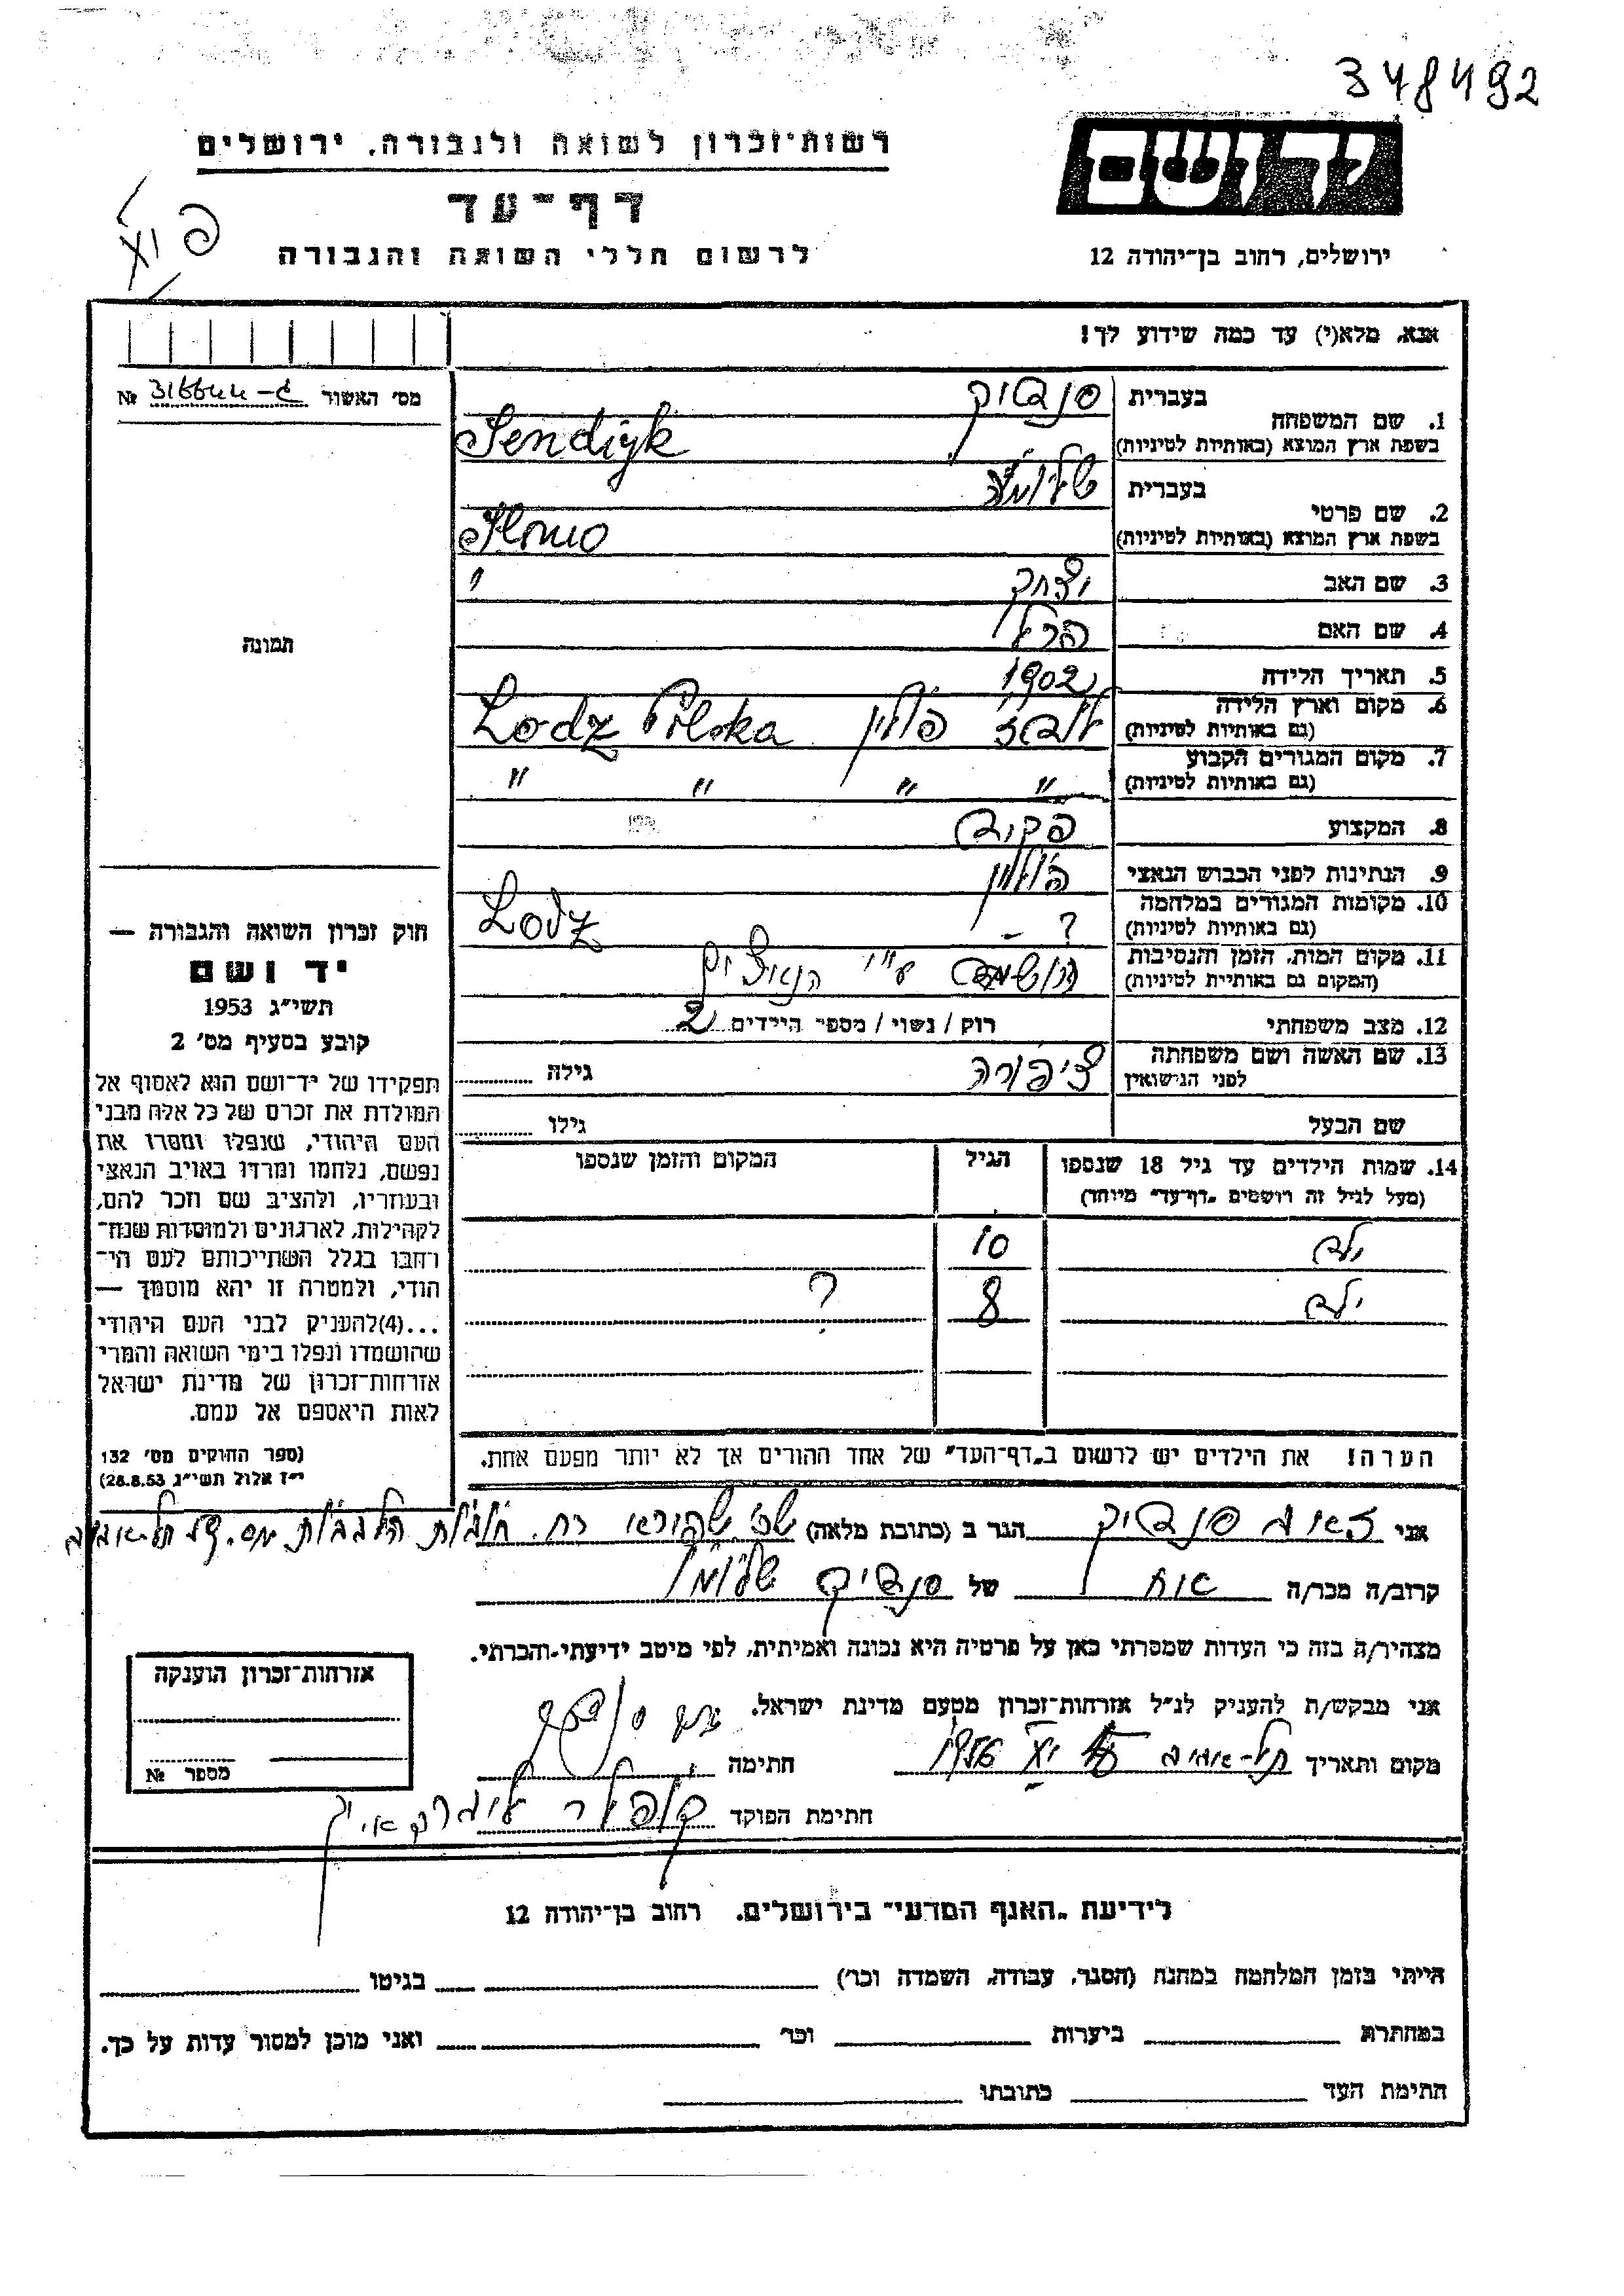 348492
יד ושם
רשות־זכרון לשואה ולגבורה, ירושלים
דף־עד
לרשום חללי השואה והגבורה
ירושלים, רחוב בן־יהודה 12
אנא, מלא(י) עד כמה שידוע לך!
מס' האשור №
בעברית סנדיק
1. שם המשפחה
בשפת ארץ המוצא (באותיות לטיניות) Sendiyk
בעברית
2. שם פרטי
בשפת ארץ המוצא (באותיות לטיניות)
3. שם האב יצחק "
4. שם האם
5. תאריך הלידה 1902
6. מקום וארץ הלידה
(גם באותיות לטיניות) לודז פולין Lodz Polska
7. מקום המגורים הקבוע
(גם באותיות לטיניות) " " " "
8. המקצוע פקיד
9. הנתינות לפני הכבוש הנאצי
10. מקומות המגורים במלחמה
(גם באותיות לטיניות) ? – Lodz
11. מקום המות, הזמן והנסיבות
(המקום גם באותיות לטיניות) הושמד ע"י הנאצים
12. מצב משפחתי רווק / נשוי / מספר הילדים 2
13. שם האשה ושם משפחתה
לפני הנישואין ציפורה גילה
שם הבעל גילו
14. שמות הילדים עד גיל 18 שנספו הגיל המקום והזמן שנספו
(מעל לגיל זה רושמים „דף־עד" מיוחד)
ילד 10
ילד 8 ?
הערה! את הילדים יש לרשום ב„דף־העד" של אחד ההורים אך לא יותר מפעם אחת.
תמונה
חוק זכרון השואה והגבורה —
יד ושם
תשי"ג 1953
קובע בסעיף מס' 2
תפקידו של יד־ושם הוא לאסוף אל
המולדת את זכרם של כל אלה מבני
העם היהודי, שנפלו ומסרו את
נפשם, נלחמו ומרדו באויב הנאצי
ובעוזריו, ולהציב שם וזכר להם,
לקהילות, לארגונים ולמוסדות שנח־
רחבו בגלל השתייכותם לעם הי־
הודי, ולמטרה זו יהא מוסמך —
...(4)להעניק לבני העם היהודי
שהושמדו ונפלו בימי השואה והמרי
אזרחות־זכרון של מדינת ישראל
לאות היאספם אל עמם.
(ספר החוקים מס' 132
י"ז אלול תשי"ג 28.8.53)
אני זאב סנדיק הגר ב (כתובת מלאה) רח. חובות הלבבות מס. תל־אביב
קרוב/ה מכר/ה אח של סנדיק
מצהיר/ה בזה כי העדות שמסרתי כאן על פרטיה היא נכונה ואמיתית, לפי מיטב ידיעתי והכרתי.
אני מבקש/ת להעניק לנ"ל אזרחות־זכרון מטעם מדינת ישראל.
מקום ותאריך תל־אביב חתימה
חתימת הפוקד
אזרחות־זכרון הוענקה
מספר №
לידיעת „האגף המדעי" בירושלים, רחוב בן־יהודה 12
הייתי בזמן המלחמה במחנה (הסגר, עבודה, השמדה וכו') בגיטו
במחתרת ביערות וכו' ואני מוכן למסור עדות על כך.
חתימת העד כתובתו